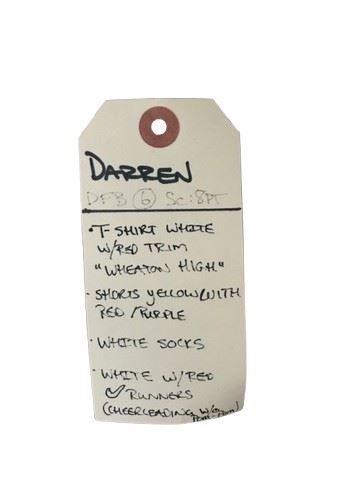 DARREN
DFB 6 SC: 8PT
• T-SHIRT WHITE
W/RED TRIM
"WHEATON HIGH"
• SHORTS YELLOW/WITH
RED /PURPLE
• WHITE SOCKS
• WHITE W/RED
✓ RUNNERS
(CHEERLEADING W/
POM-POM)